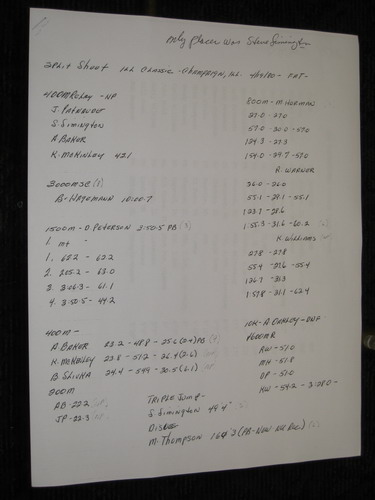 only placer was Steve Simington
Split Sheet Ill Classic - Champaign, Ill. - 4/19/80 - FAT -
400m Relay - NP
S. Simington
A. Baker
K. McKinley 42.1
3000m SC
B. Hagemann 10:00.7
1500m - D Peterson 3:50.5 PB
1. 62.2 - 62.2
2. 2:05.2 - 63.0
3. 3:06.3 - 61.1
4. 3:50.5 - 44.2
400m -
A. Baker 23.2 - 48.8 - 25.6 (2.4) PB
K. McKinley 23.8 - 50.2 - 26.4 (2.6)
B Slicha 24.4 - 54.9 - 30.5 (6.1)
200m
AB - 22.2
JP - 22.3
Triple Jump -
S. Simington 49'4"
Disc
M. Thompson (PB - New NR Rec)
800m - M. Horman
27.0 - 27.0
57.0 - 30.0 - 57.0
1:24.3 - 27.3
1:54.0 - 29.7 - 57.0
R. Warner
26.0 - 26.0
55.1 - 29.1 - 55.1
1:23.7 - 28.6
1:55.3 - 31.6 - 60.2
K. Williams
27.8 - 27.8
55.4 - 27.6 - 55.4
1:26.7 - 31.3
1:57.8 - 31.1 - 62.4
10K - A Oakley - DNF
1600m R
RW - 51.0
MH - 51.8
DP - 51.0
KW - 54.2 - 3:28.0 -